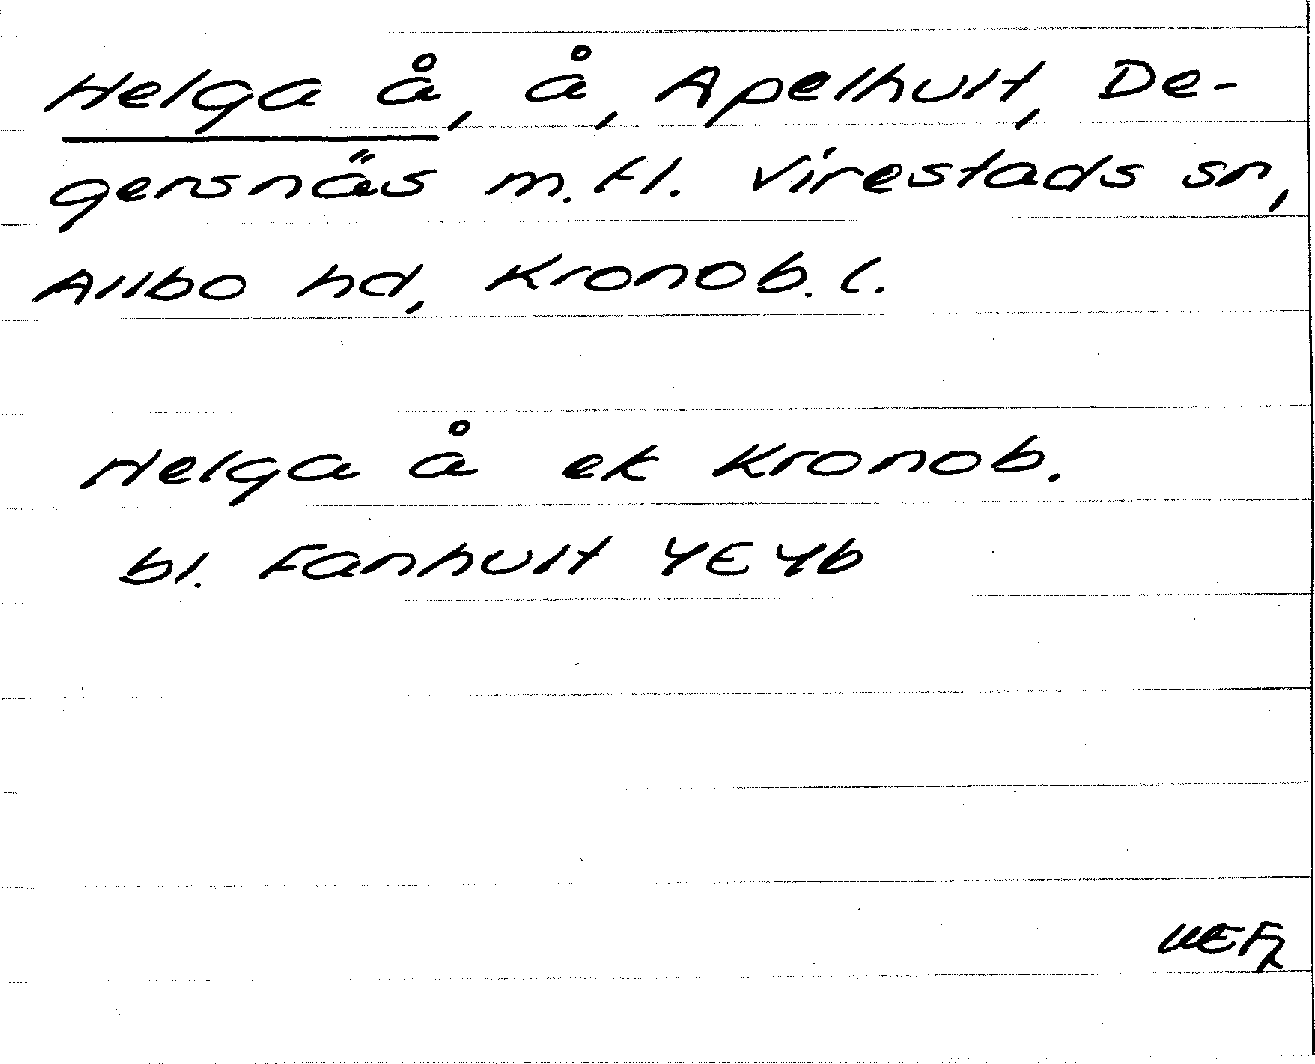 Helga å, å, Apelhult, De-
gersnäs m.fl. Virestads sn,
Allbo hd, Kronob. l.
Helga å ek Kronob.
bl. Fanhult 4E4b